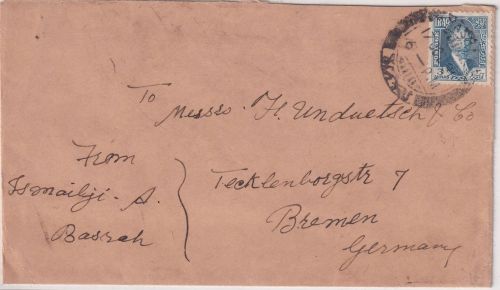 IRAQ
3
To Messrs. H. Unduetsch & Co
Tecklenborgstr 7
Bremen
Germany
From
Ismailji. A.
Basrah